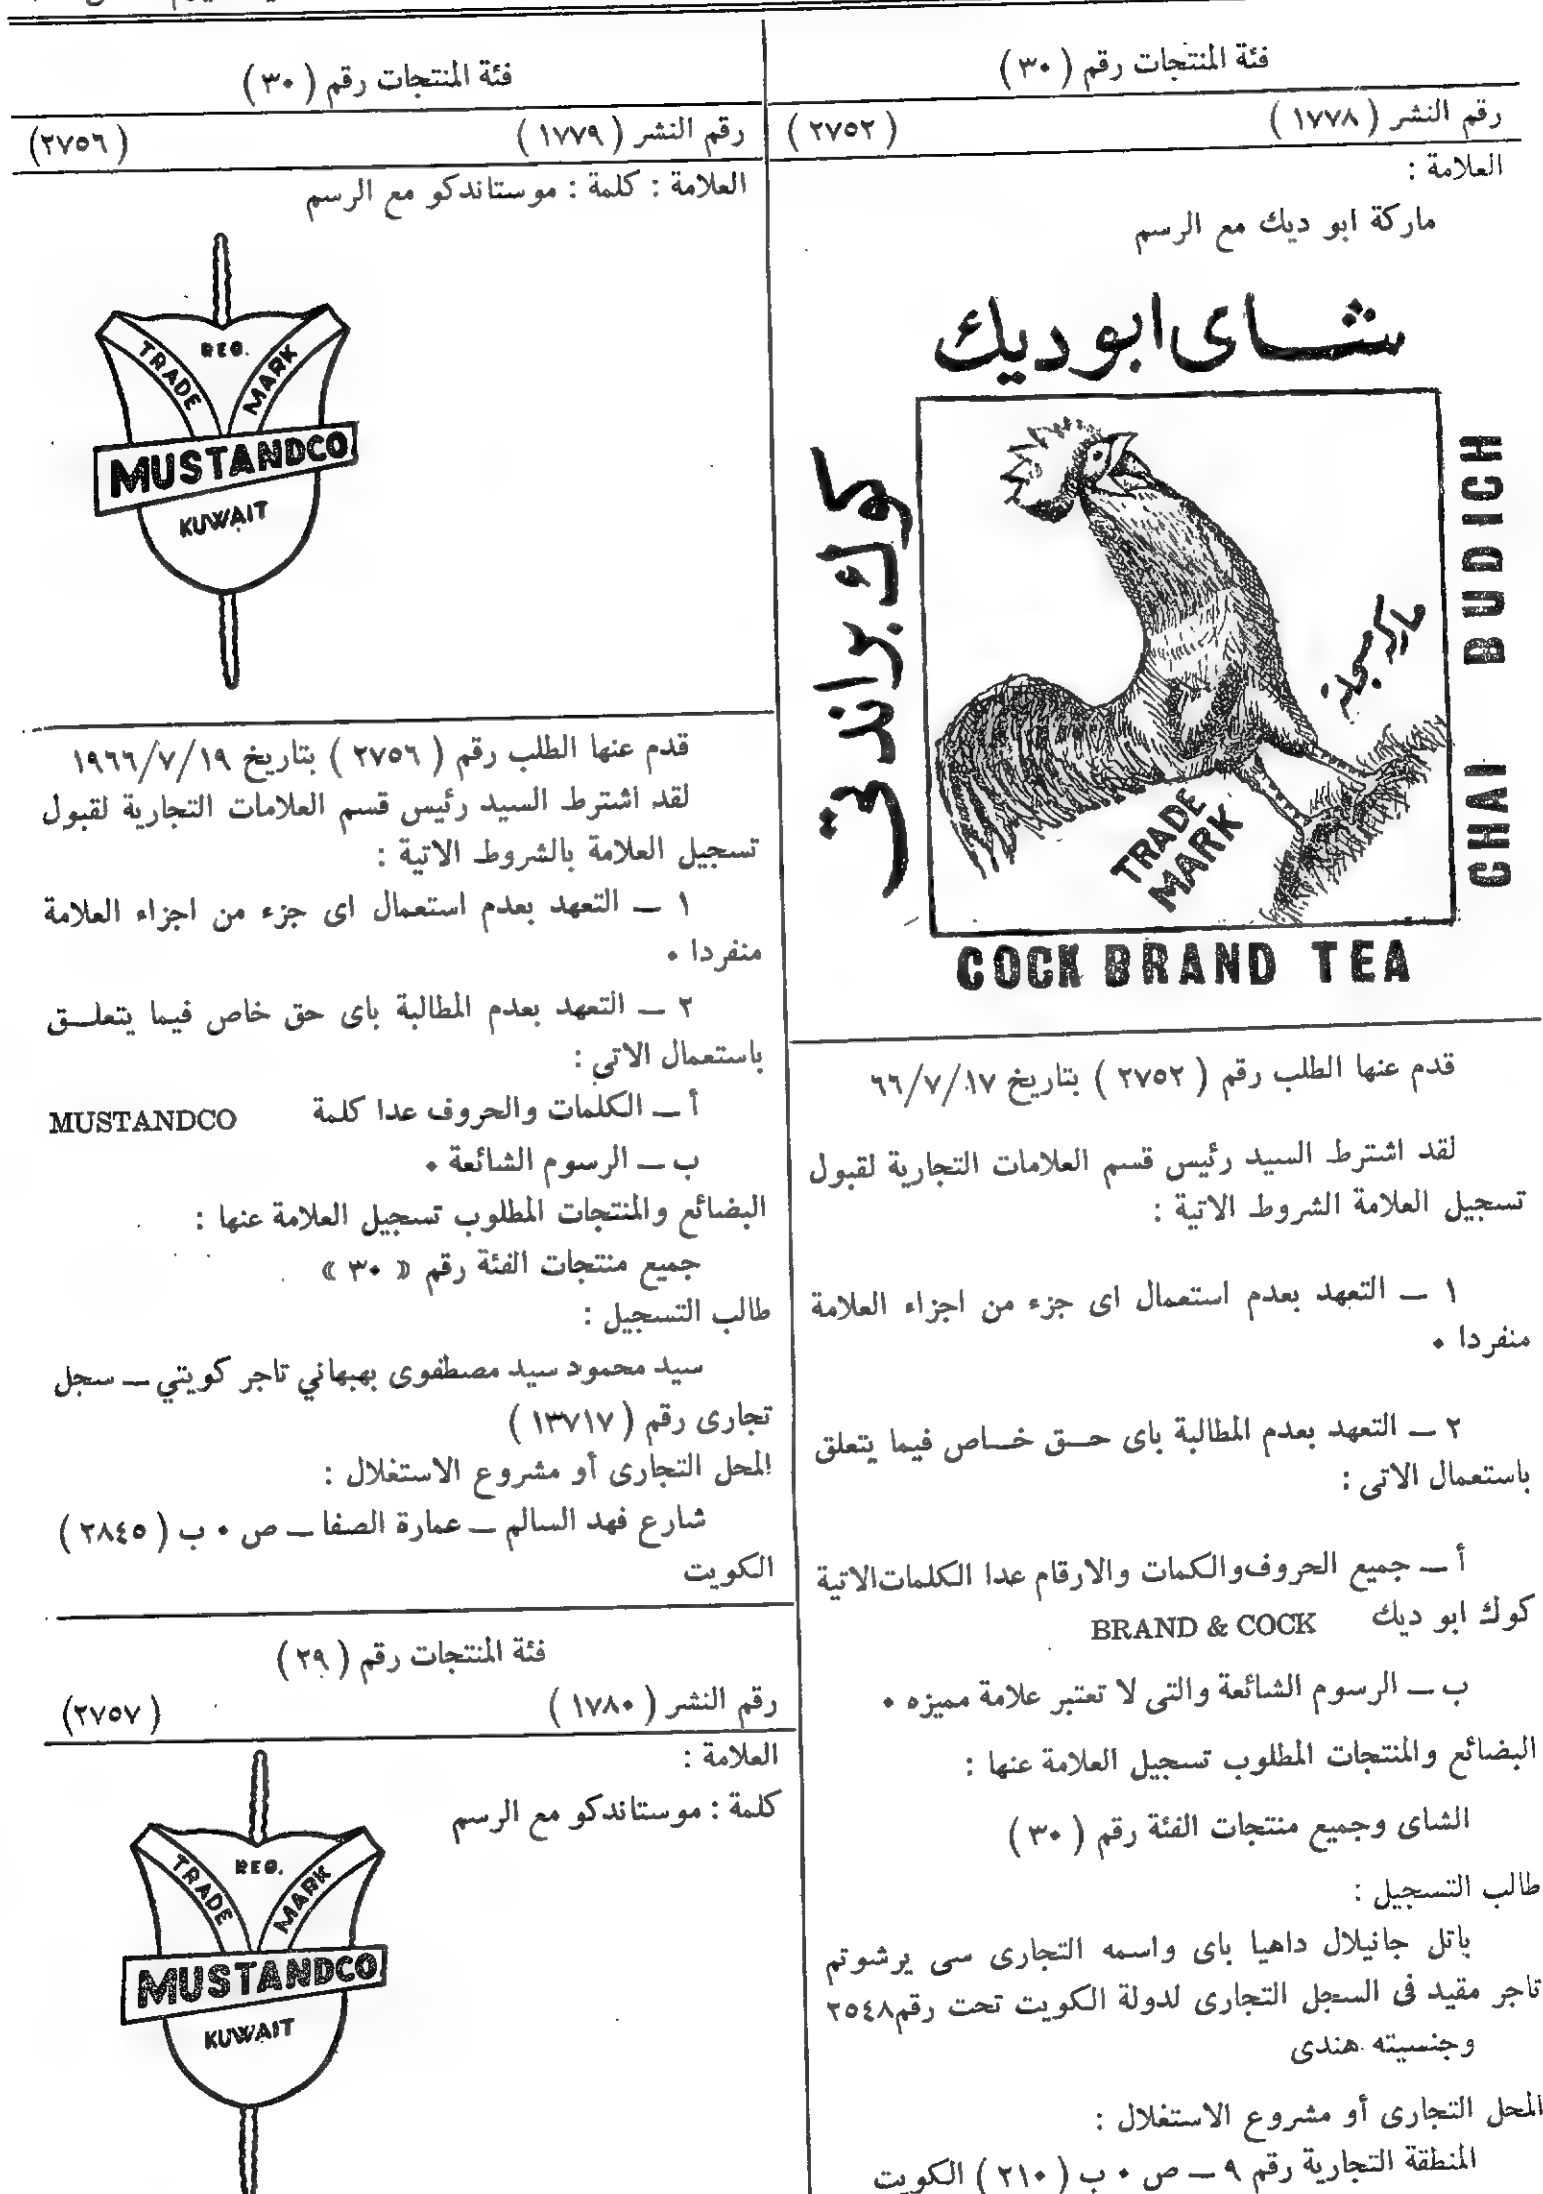 فئة المنتجات رقم ( ٣٠ )
رقم النشر ( ١٧٧٨ ) ( ٢٧٥٢ )
العلامة :
ماركة ابو ديك مع الرسم
شاى ابو ديك
كوك براندتى
ماركه مسجلة
TRADE
MARK
CHAI BUDICH
COCK BRAND TEA
قدم عنها الطلب رقم ( ٢٧٥٢ ) بتاريخ ٦٦/٧/١٧
لقد اشترط السيد رئيس قسم العلامات التجارية لقبول
تسجيل العلامة الشروط الاتية :
١ ــ التعهد بعدم استعمال اى جزء من اجزاء العلامة
منفردا ٠
٢ ــ التعهد بعدم المطالبة باى حــق خــاص فيما يتعلق
باستعمال الاتى :
أ ــ جميع الحروف والكمات والارقام عدا الكلمات الاتية
كوك ابو ديك BRAND & COCK
ب ــ الرسوم الشائعة والتى لا تعتبر علامة مميزه ٠
البضائع والمنتجات المطلوب تسجيل العلامة عنها :
الشاى وجميع منتجات الفئة رقم ( ٣٠ )
طالب التسجيل :
باتل جانيلال داهيا باى واسمه التجارى سى يرشوتم
تاجر مقيد فى السجل التجارى لدولة الكويت تحت رقم ٢٥٤٨
وجنسيته هندى
المحل التجارى أو مشروع الاستغلال :
المنطقة التجارية رقم ٩ ــ ص ٠ ب ( ٢١٠ ) الكويت
فئة المنتجات رقم ( ٣٠ )
رقم النشر ( ١٧٧٩ ) ( ٢٧٥٦ )
العلامة : كلمة : موستاندكو مع الرسم
REG.
TRADE MARK
MUSTANDCO
KUWAIT
قدم عنها الطلب رقم ( ٢٧٥٦ ) بتاريخ ١٩٦٦/٧/١٩
لقد اشترط السيد رئيس قسم العلامات التجارية لقبول
تسجيل العلامة بالشروط الاتية :
١ ــ التعهد بعدم استعمال اى جزء من اجزاء العلامة
منفردا ٠
٢ ــ التعهد بعدم المطالبة باى حق خاص فيما يتعلــق
باستعمال الاتي :
أ ــ الكلمات والحروف عدا كلمة MUSTANDCO
ب ــ الرسوم الشائعة ٠
البضائع والمنتجات المطلوب تسجيل العلامة عنها :
جميع منتجات الفئة رقم « ٣٠ »
طالب التسجيل :
سيد محمود سيد مصطفوى بهبهاني تاجر كويتي ــ سجل
تجارى رقم ( ١٣٧١٧ )
المحل التجارى أو مشروع الاستغلال :
شارع فهد السالم ــ عمارة الصفا ــ ص ٠ ب ( ٢٨٤٥ )
الكويت
فئة المنتجات رقم ( ٢٩ )
رقم النشر ( ١٧٨٠ ) ( ٢٧٥٧ )
العلامة :
كلمة : موستاندكو مع الرسم
REG.
TRADE MARK
MUSTANDCO
KUWAIT